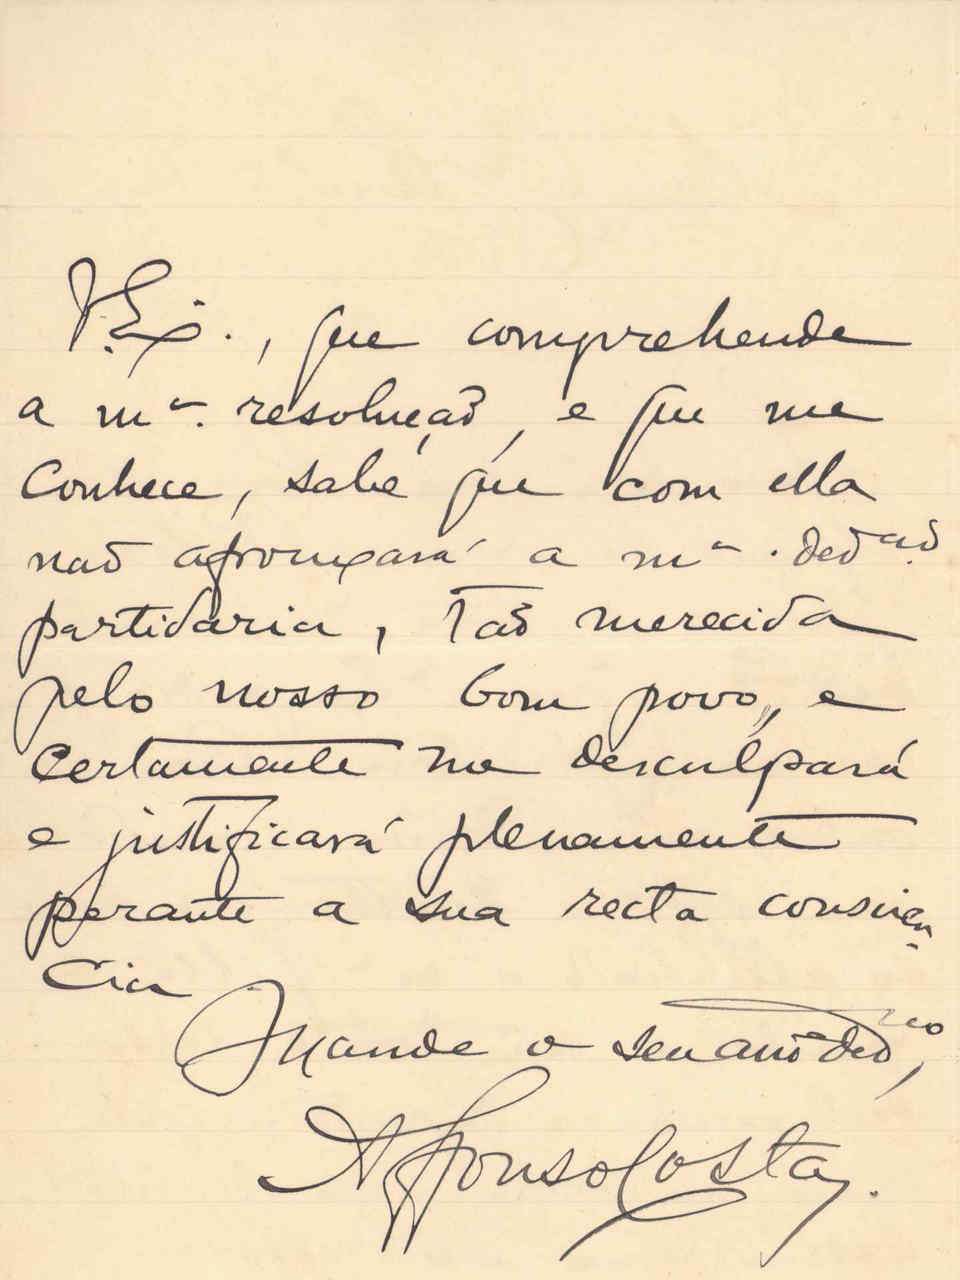 V. Ex.., que comprehende
a mª. resolução, e que me
conhece, sabe que com ella
não afrouxará a mª. dedᶜᵃᵒ.
partidaria, tão merecida
pelo nosso bom povo, e
certamente me desculpará
e justificará plenamente
perante a sua recta conscien-
cia
Mande o seu amº dedᵐᵒ,
Affonso Costa.